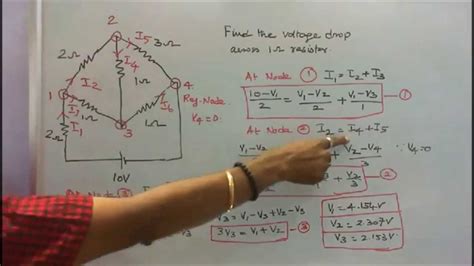 2
I5
3Ω
2Ω
I4
I2
1Ω
4
1
I3
I6
I1
1Ω
1Ω
3
2Ω
I1
10V
Ref-Node
V4=0
Find the voltage drop
across 1Ω resistor.
At Node ① I1 = I2+I3
10-V1/2 = V1-V2/2 + V1-V3/1 ①
At Node ② I2 = I4+I5
V1-V2 + V2-V4/3 ∵ V4=0
+ V2/3 ②
V3 = V1-V3+V2-V3
3V3 = V1+V2 ③
V1 = 4.154V
V2 = 2.307V
V3 = 2.153V